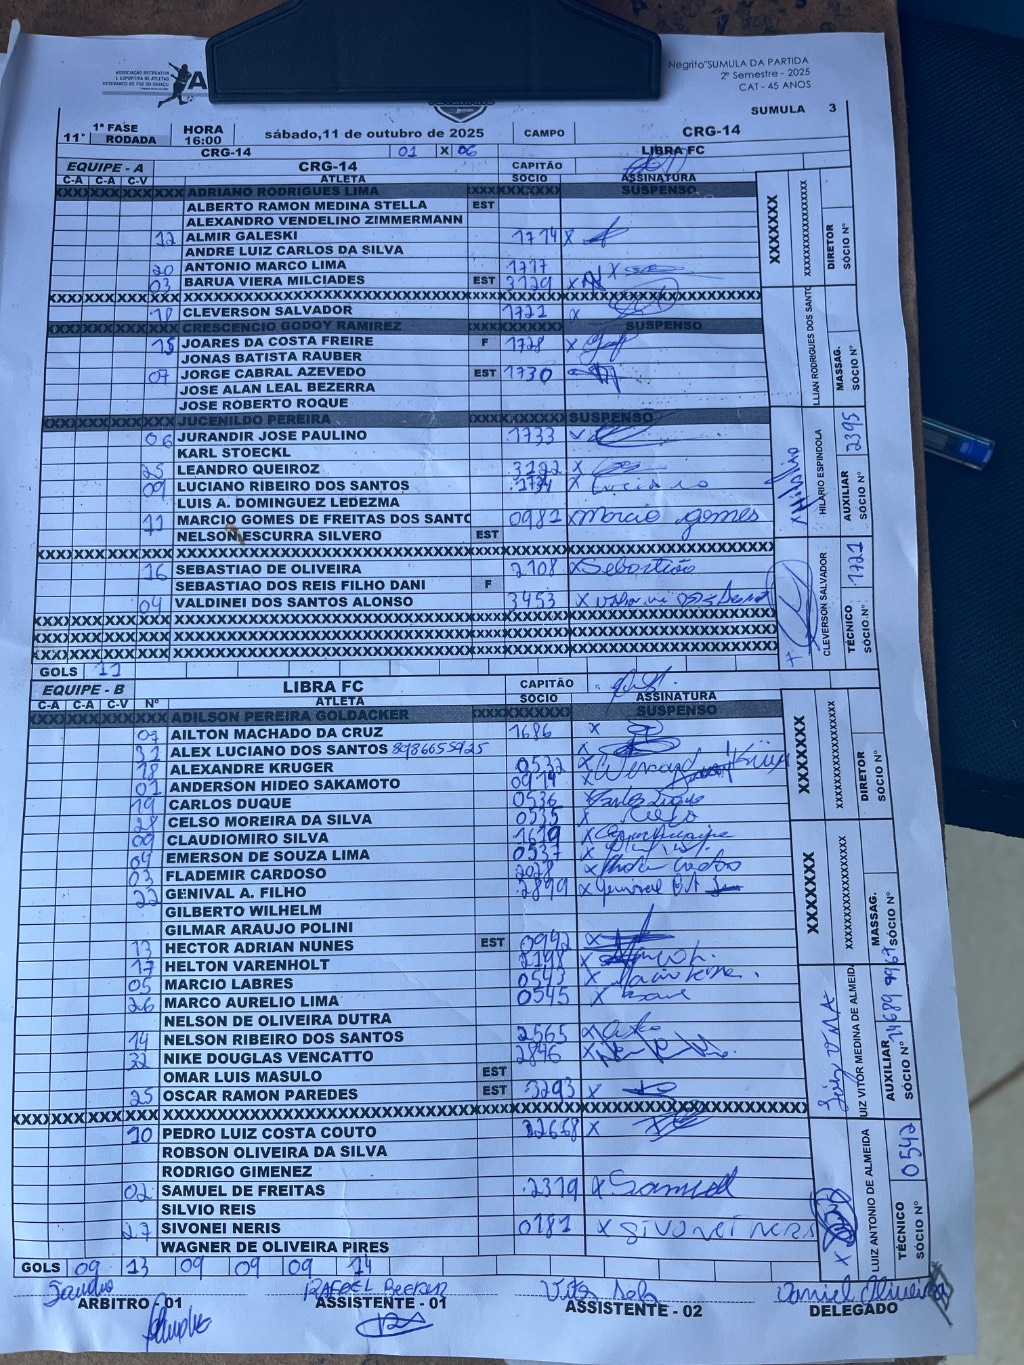 ASSOCIAÇÃO RECREATIVA
E ESPORTIVA DE ATLETAS
VETERANOS DE FOZ DO IGUAÇU
A
Negrito"SUMULA DA PARTIDA
2º Semestre - 2025
CAT - 45 ANOS
SUMULA 3
11ª 1ª FASE RODADA HORA 16:00 sábado,11 de outubro de 2025 CAMPO CRG-14
CRG-14 01 X 06 LIBRA FC
EQUIPE - A CRG-14 CAPITÃO
C-A C-A C-V ATLETA SOCIO ASSINATURA
XXXX XXX XXX XXX ADRIANO RODRIGUES LIMA XXXX XXXXXX SUSPENSO
ALBERTO RAMON MEDINA STELLA EST
ALEXANDRO VENDELINO ZIMMERMANN
12 ALMIR GALESKI 1714 X
ANDRE LUIZ CARLOS DA SILVA
20 ANTONIO MARCO LIMA 1717 X
03 BARUA VIERA MILCIADES EST 3129 X
18 CLEVERSON SALVADOR 1721 X
CRESCENCIO GODOY RAMIREZ SUSPENSO
15 JOARES DA COSTA FREIRE F 1728 X
JONAS BATISTA RAUBER
07 JORGE CABRAL AZEVEDO EST 1730
JOSE ALAN LEAL BEZERRA
JOSE ROBERTO ROQUE
JUCENILDO PEREIRA SUSPENSO
06 JURANDIR JOSE PAULINO 1733
KARL STOECKL
25 LEANDRO QUEIROZ 3122 X
09 LUCIANO RIBEIRO DOS SANTOS 1734 X Luciano
LUIS A. DOMINGUEZ LEDEZMA
11 MARCIO GOMES DE FREITAS DOS SANTO 0981 X Marcio gomes
NELSON ESCURRA SILVERO EST
16 SEBASTIAO DE OLIVEIRA 2108 X Sebastião
SEBASTIAO DOS REIS FILHO DANI F
04 VALDINEI DOS SANTOS ALONSO 3453 X
GOLS 11
XXXXXXX XXXXXXXXXXXXXXXXX DIRETOR SÓCIO Nº
LUAN RODRIGUES DOS SANTO MASSAG. SÓCIO Nº
HILARIO ESPINDOLA AUXILIAR SÓCIO Nº 2395
CLEVERSON SALVADOR TÉCNICO SÓCIO Nº 1721
EQUIPE - B LIBRA FC CAPITÃO
C-A C-A C-V Nº ATLETA SOCIO ASSINATURA
ADILSON PEREIRA GOLDACKER SUSPENSO
07 AILTON MACHADO DA CRUZ 1686 X
31 ALEX LUCIANO DOS SANTOS 8986655925 X
18 ALEXANDRE KRUGER 0532 X
01 ANDERSON HIDEO SAKAMOTO 0914 X
19 CARLOS DUQUE 0536 Carlos Duque
28 CELSO MOREIRA DA SILVA 0535 X
09 CLAUDIOMIRO SILVA 1619 X
04 EMERSON DE SOUZA LIMA 0537 X
03 FLADEMIR CARDOSO 2028 X
22 GENIVAL A. FILHO 2899 X Genival
GILBERTO WILHELM
GILMAR ARAUJO POLINI
13 HECTOR ADRIAN NUNES EST 0992 X
17 HELTON VARENHOLT 2198 X
05 MARCIO LABRES 0543 X
26 MARCO AURELIO LIMA 0545 X
NELSON DE OLIVEIRA DUTRA
14 NELSON RIBEIRO DOS SANTOS 2565 X
32 NIKE DOUGLAS VENCATTO 2846 X
OMAR LUIS MASULO EST
25 OSCAR RAMON PAREDES EST 3293 X
10 PEDRO LUIZ COSTA COUTO 22668 X
ROBSON OLIVEIRA DA SILVA
RODRIGO GIMENEZ
02 SAMUEL DE FREITAS 2319 X Samuel
SILVIO REIS
27 SIVONEI NERIS 0181 X SIVONEI NERIS
WAGNER DE OLIVEIRA PIRES
XXXXXXX XXXXXXXXXXXXXXXXX DIRETOR SÓCIO Nº
XXXXXXX XXXXXXXXXXXXXXXXX MASSAG. SÓCIO Nº
LUIZ VITOR MEDINA DE ALMEIDA AUXILIAR SÓCIO Nº
LUIZ ANTONIO DE ALMEIDA TÉCNICO SÓCIO Nº 0542
GOLS 09 13 09 09 09 14
Sandro RAFAEL BECKER Daniel Oliveira
ARBITRO - 01 ASSISTENTE - 01 ASSISTENTE - 02 DELEGADO